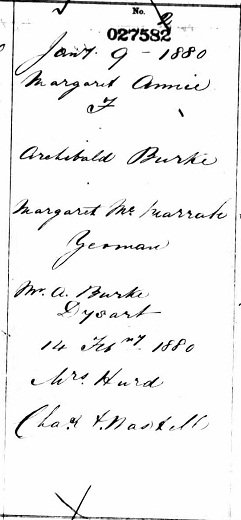 No. 2
027582
Jany. 9 - 1880
Margaret Annie
F
Archibald Burke
Margaret Mc
Yeoman
Mr. A. Burke
Dysart
14 Feby. 1880
Mrs. Hurd
Chas.